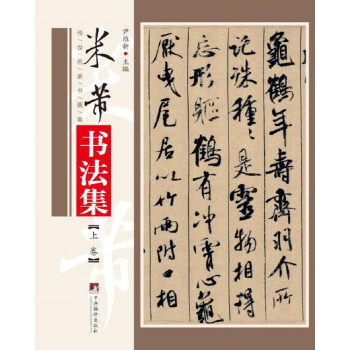 尹维新·主编
传·世·名·家·书·画·集
米芾
书法集
【上卷】
中央编译出版社
龜鶴年壽齊羽介所
託殊種種是靈物相得
忘形軀鶴有冲霄心龜
厭曳尾居以竹兩附口相